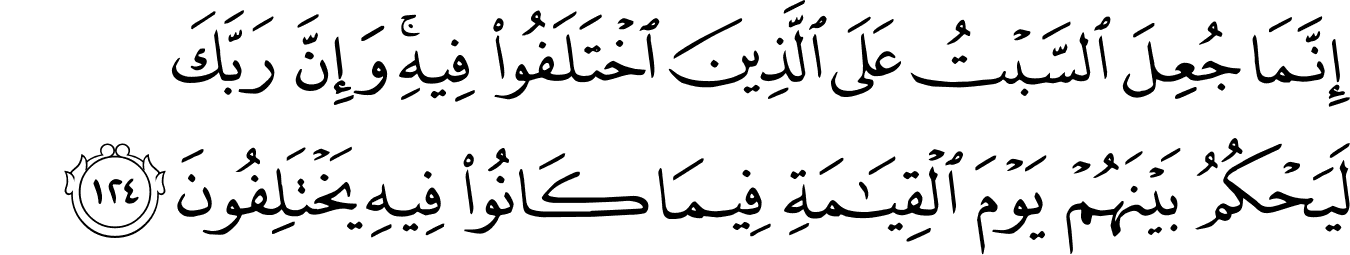 إِنَّمَا جُعِلَ ٱلسَّبْتُ عَلَى ٱلَّذِينَ ٱخْتَلَفُوا۟ فِيهِ ۚ وَإِنَّ رَبَّكَ
لَيَحْكُمُ بَيْنَهُمْ يَوْمَ ٱلْقِيَـٰمَةِ فِيمَا كَانُوا۟ فِيهِ يَخْتَلِفُونَ ١٢٤